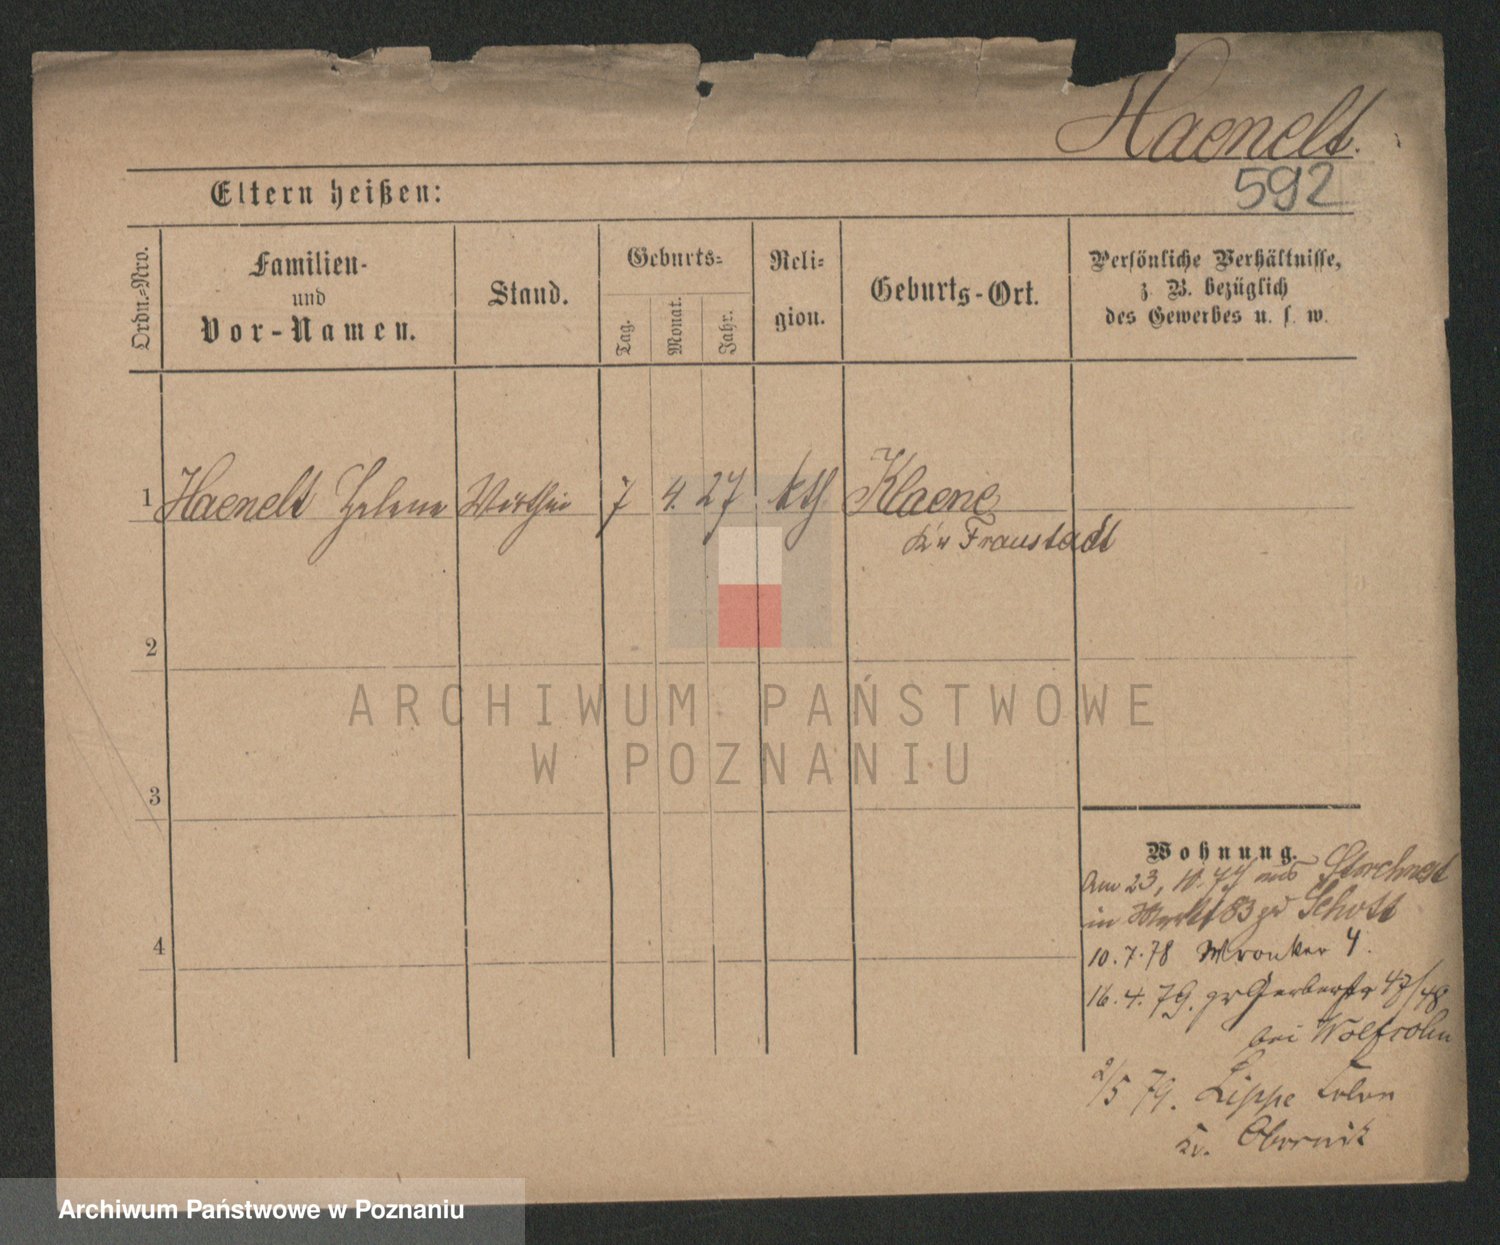 Haenelt.
592
Eltern heißen:
Ordn.-Nro.
Familien-
und
Vor-Namen.
Stand.
Geburts-
Tag.
Monat.
Jahr.
Reli-
gion.
Geburts-Ort.
Persönliche Verhältnisse,
z. B. bezüglich
des Gewerbes u. s. w.
1 Haenelt Helene Wirthin 7 4. 27 kth Klaene
Kr Fraustadt
2
3
4
Wohnung.
Am 23, 10. 77 aus Storchnest
in Markt 83 zu Schott
10.7.78 Wronker 4.
16.4.79. gr Gerberstr 47/48
bei Wolfsohn
2/5 79. Lippe
Kr. Obornik
ARCHIWUM PAŃSTWOWE
W POZNANIU
Archiwum Państwowe w Poznaniu